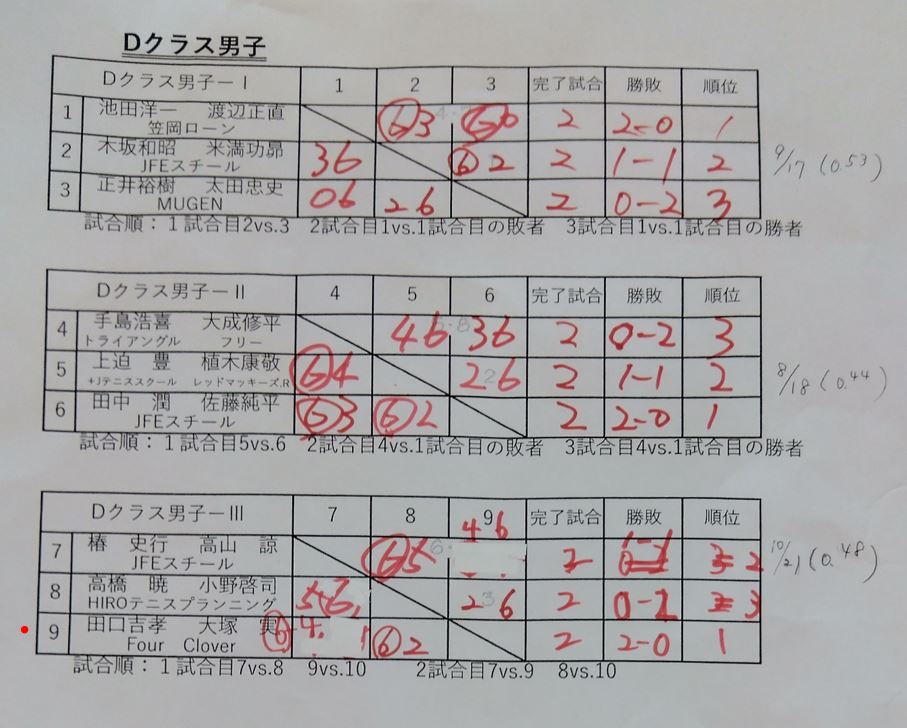 Dクラス男子
Dクラス男子ーⅠ 1 2 3 完了試合 勝敗 順位
1 池田洋一 渡辺正直 ⑥3 ⑥0 2 2-0 1
笠岡ローン
2 木坂和昭 米満功昴 36 ⑥2 2 1-1 2 9/17 (0.53)
JFEスチール
3 正井裕樹 太田忠史 06 26 2 0-2 3
MUGEN
試合順:1試合目2vs.3 2試合目1vs.1試合目の敗者 3試合目1vs.1試合目の勝者
Dクラス男子ーⅡ 4 5 6 完了試合 勝敗 順位
4 手島浩喜 大成修平 46 36 2 0-2 3
トライアングル フリー
5 上迫 豊 植木康敬 ⑥4 26 2 1-1 2 8/18 (0.44)
+Jテニススクール レッドマッキーズ.R
6 田中 潤 佐藤純平 ⑥3 ⑥2 2 2-0 1
JFEスチール
試合順:1試合目5vs.6 2試合目4vs.1試合目の敗者 3試合目4vs.1試合目の勝者
Dクラス男子ーⅢ 7 8 9 完了試合 勝敗 順位
7 椿 史行 高山 諒 ⑥5 46 2 1-1 2 10/21 (0.48)
JFEスチール
8 高橋 暁 小野啓司 56 26 2 0-2 3
HIROテニスプランニング
9 田口吉孝 大塚 実 ⑥4 ⑥2 2 2-0 1
Four Clover
試合順:1試合目7vs.8 9vs.10 2試合目7vs.9 8vs.10